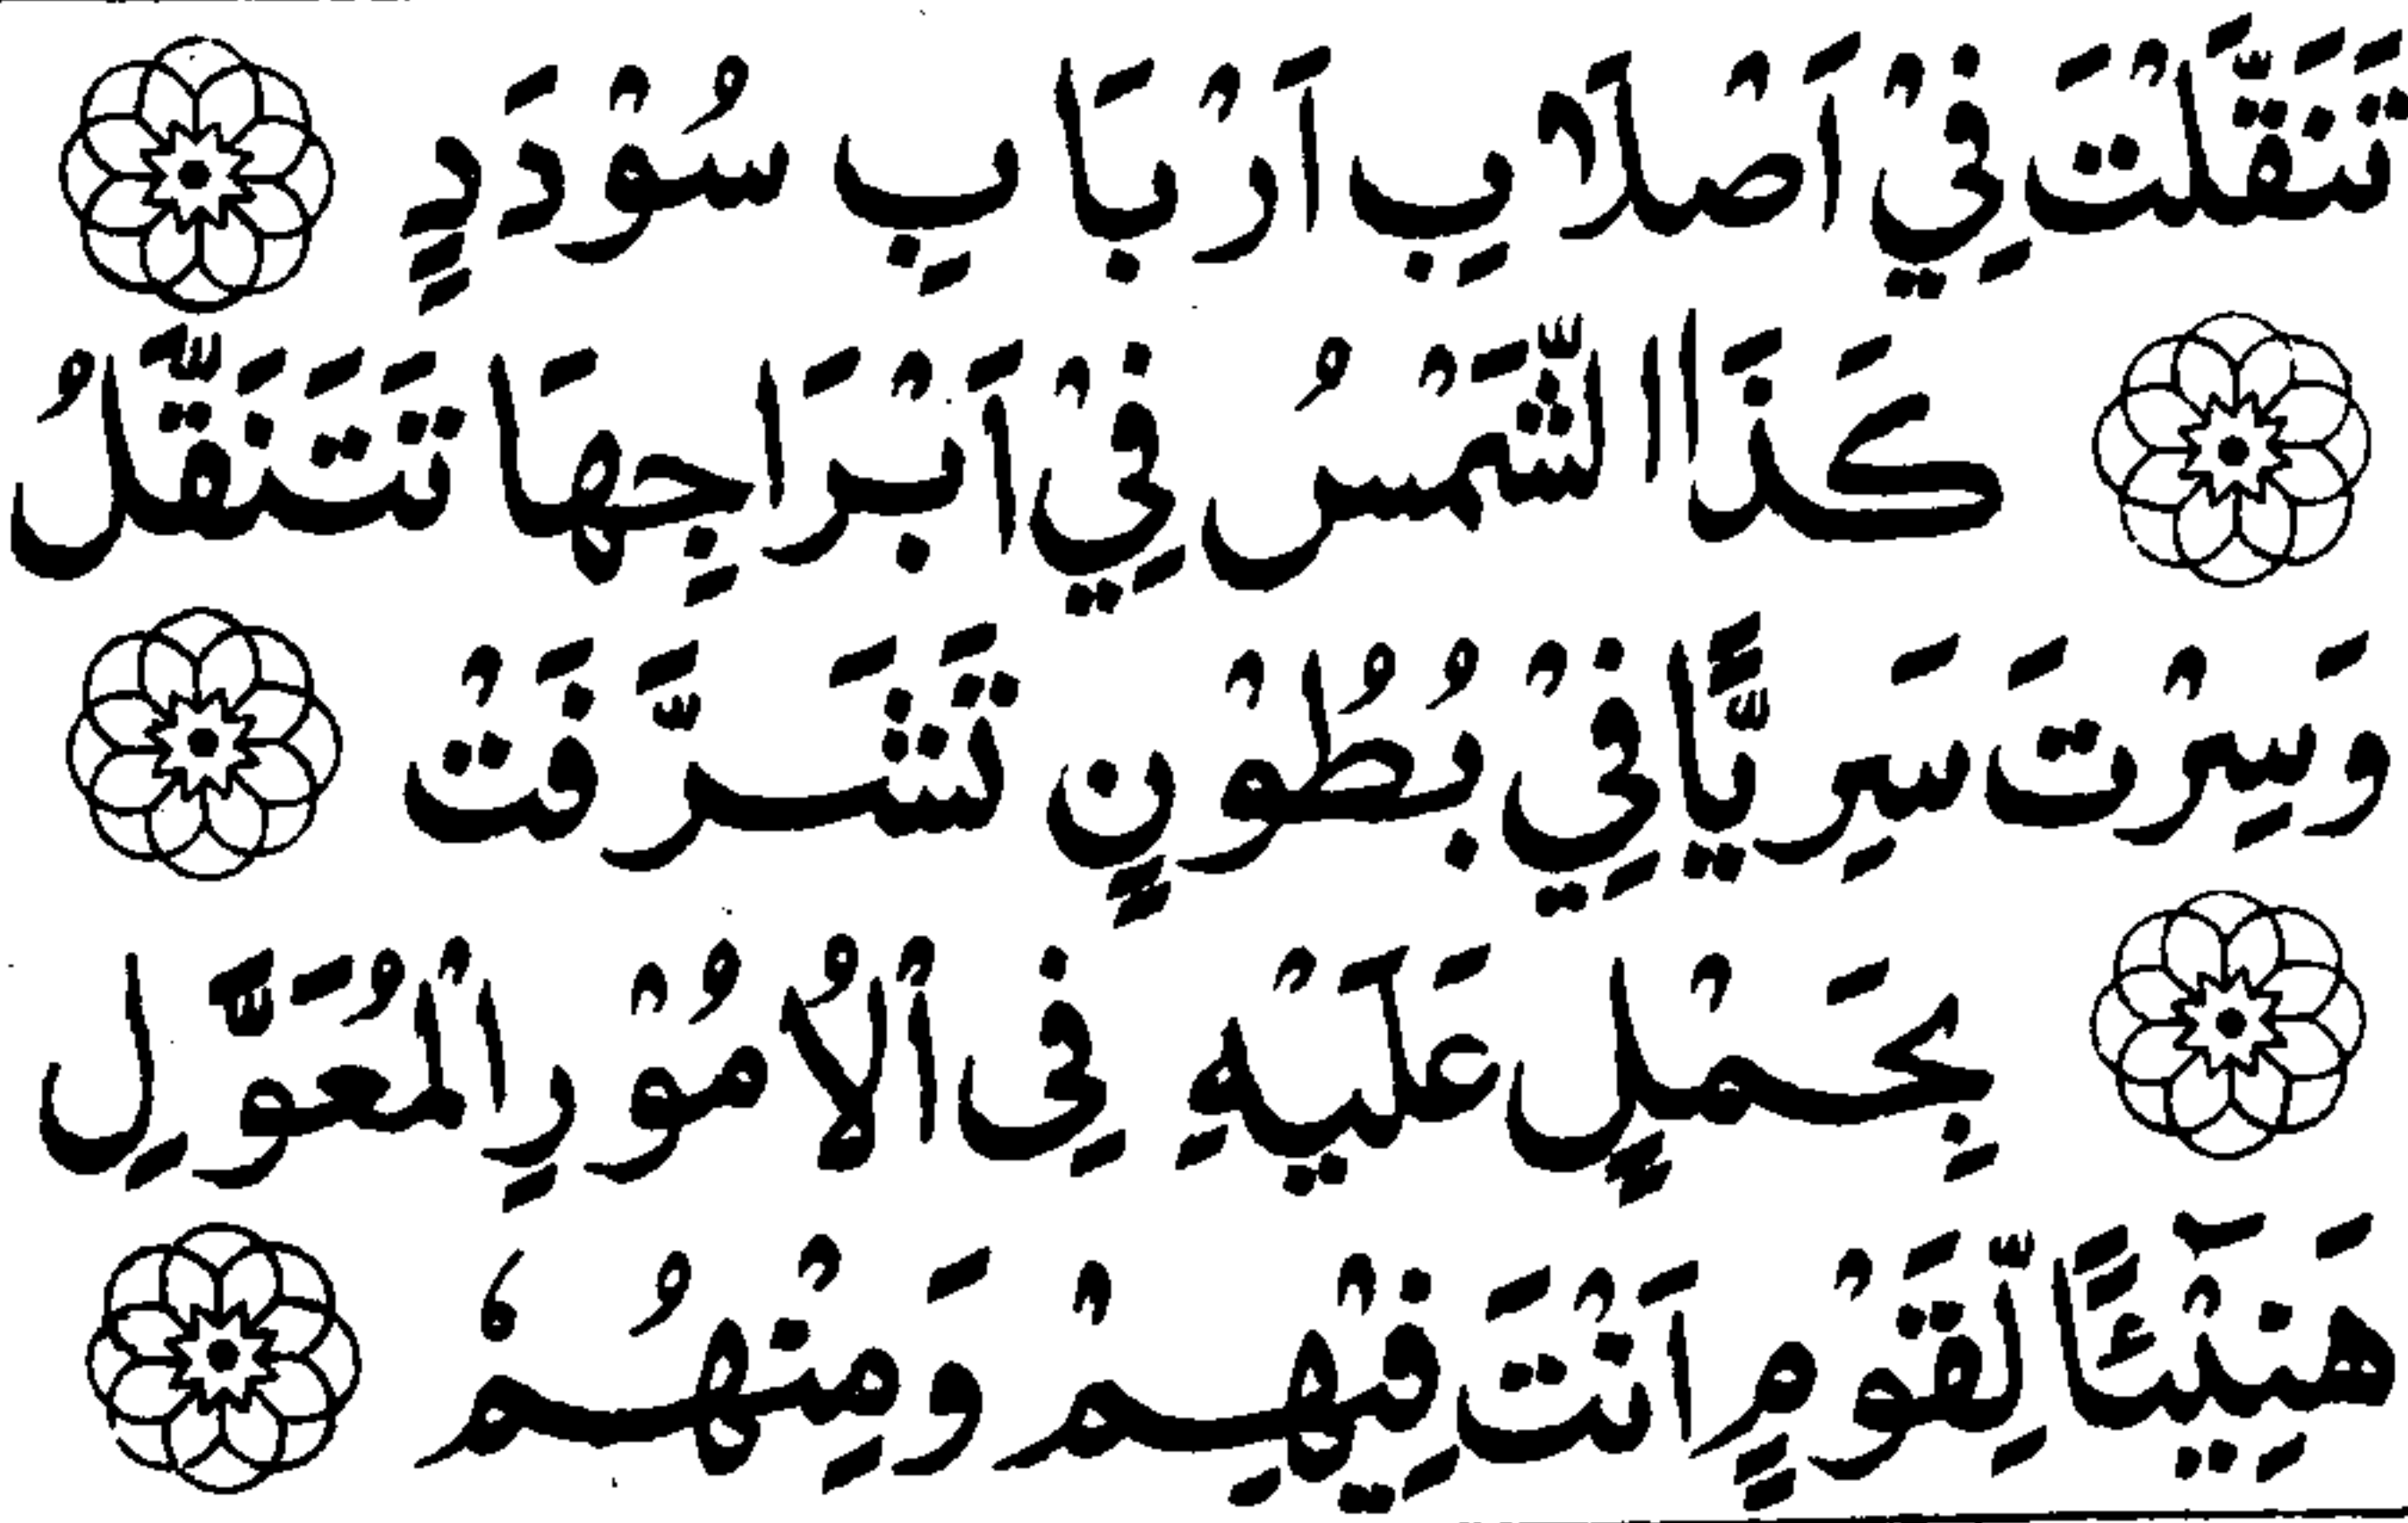 تَنَقَّلْتَ فِيْ اَصْلَابِ اَرْبَابِ سُوْدَدٍ
كَذَا الشَّمْسُ فِيْ اَبْرَاجِهَا تَتَنَقَّلُ
وَسِرْتَ سَرِيًّا فِيْ بُطُوْنٍ تَشَرَّفَتْ
بِحَمْلٍ عَلَيْهِ فِى الْاُمُوْرِ الْمُعَوَّلِ
هَنِيْٓـًٔا لِّقَوْمٍ اَنْتَ فِيْهِمْ وَمِنْهُمْ